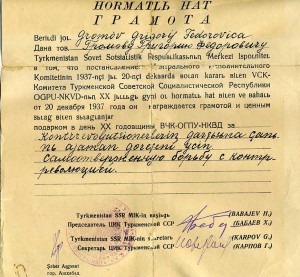 HORMATLЬ HAT
ГРАМОТА
Berildi joł. Gromov Grigorij Fedorovica
Дана тов. Громову Григорию Федоровичу
Tyrkmenistan Sovet Sotsialistik Respublikasьnьn Merkezi Ispolnitel
в том, что постановлением Центрального Исполнительного
Komitetinin 1937-nçi jьl 20-nçi dekabrda bolan kararь bilen VCK-
Комитета Туркменской Советской Социалистической Республики
OGPU-NKVD-nьn XX jьllьg gyni ol hormatь hat bilen ve bahalь
от 20 декабря 1937 года он награждается грамотой и ценным
sьlag bilen sьlaglanjar
подарком в день XX годовщины ВЧК-ОГПУ-НКВД за
Kontrrevolutsionerlerin garşьsьna
ajaman goreşeni ycin
Самоотверженную борьбу с контр-
революцией.
Tyrkmenistan SSR MIK-in naçalьgь (BABAJEV H.)
Председатель ЦИК Туркменской ССР (БАБАЕВ Х.)
Tyrkmenistan SSR MIK-in sekretarь (KARPOV G.)
Секретарь ЦИК Туркменской ССР (КАРПОВ Г.)
Şeher Aşgabat
гор. Ашхабад